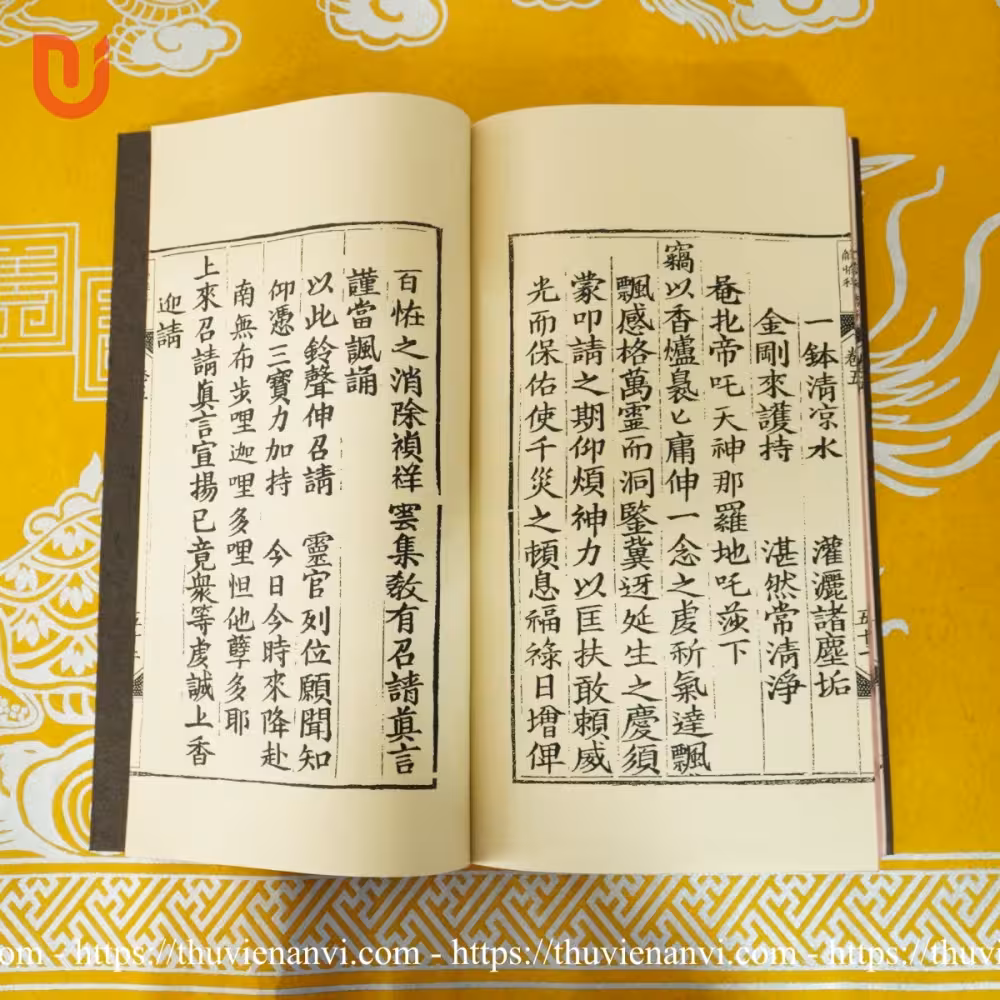 一鉢清凉水　灌灑諸塵垢
金剛來護持　湛然常清淨
菴扎帝吒天神那羅地吒莎下
竊以香爐裊匕庸伸一念之虔祈氣達飄
飄感格萬靈而洞鑒冀迓延生之慶須
蒙叩請之期仰煩神力以匡扶敢賴威
光而保佑使千災之頓息福祿日增俾
卷五
五十一
百恠之消除禎祥雲集教有召請真言
謹當諷誦
以此鈴聲伸召請　靈官列位願聞知
仰憑三寶力加持　今日今時來降赴
南無布步哩迦哩多哩怛他孽多耶
上來召請真言宣揚已竟衆等虔誠上香
迎請
.com - https://thuvienanvi.com - https://thuvienanvi.com - https:/